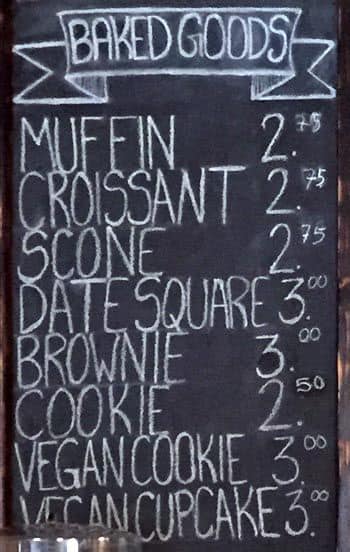 BAKED GOODS
MUFFIN 2.75
CROISSANT 2.75
SCONE 2.75
DATE SQUARE 3.00
BROWNIE 3.00
COOKIE 2.50
VEGAN COOKIE 3.00
VEGAN CUPCAKE 3.00